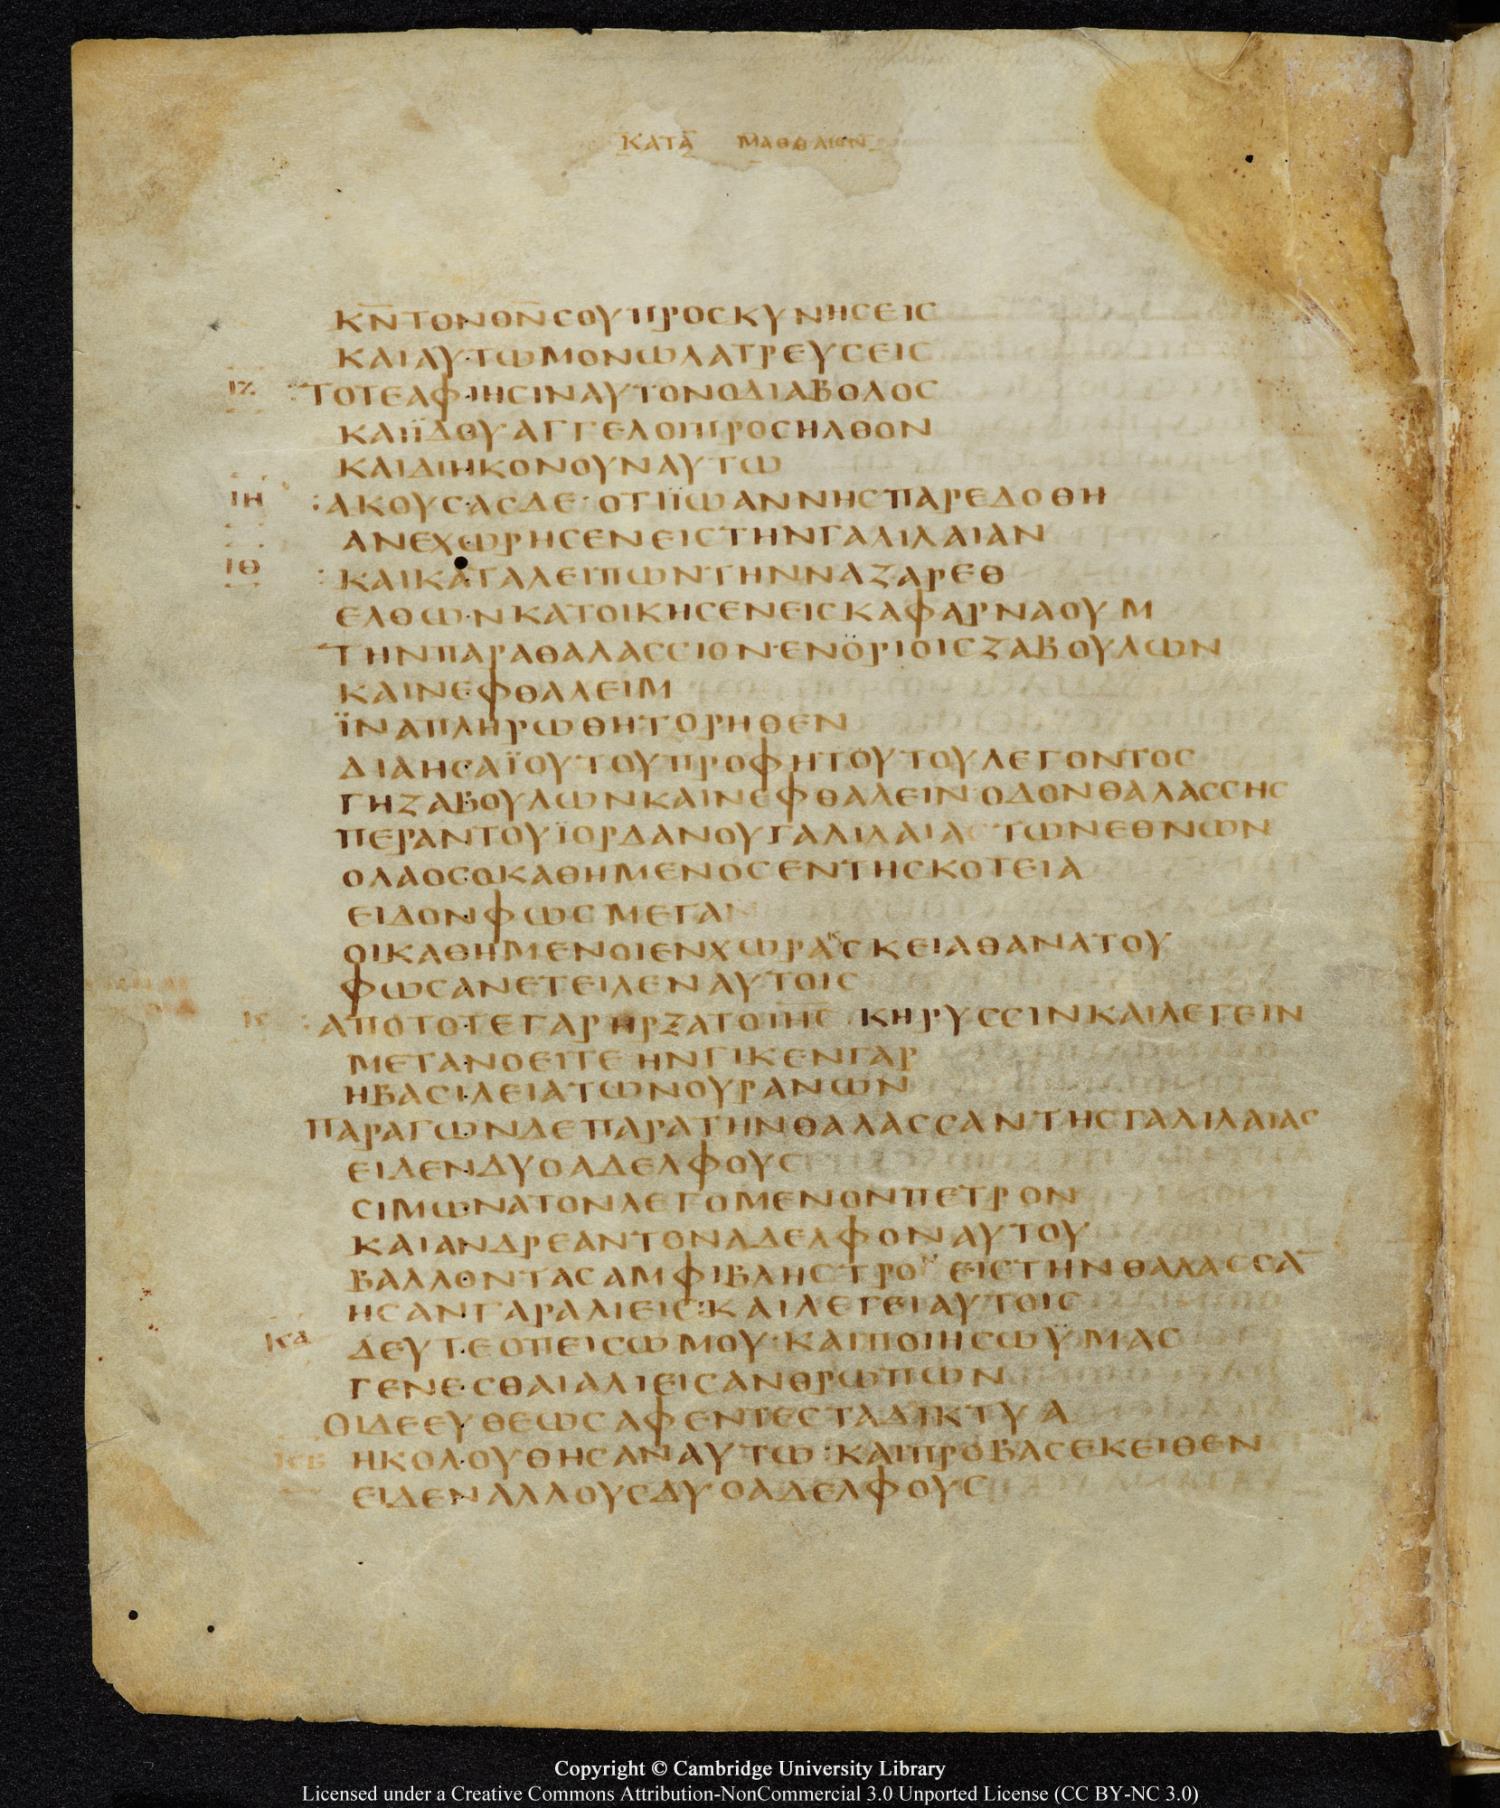 ΚΑΤΑ ΜΑΘΘΑΙΟΝ
ΚΝ̅ΤΟΝΘΝ̅ΣΟΥΠΡΟΣΚΥΝΗΣΕΙΣ
ΚΑΙΑΥΤΩΜΟΝΩΛΑΤΡΕΥΣΕΙΣ
ΙΖ ΤΟΤΕΑΦΙΗΣΙΝΑΥΤΟΝΟΔΙΑΒΟΛΟΣ
ΚΑΙΪΔΟΥΑΓΓΕΛΟΙΠΡΟΣΗΛΘΟΝ
ΚΑΙΔΙΗΚΟΝΟΥΝΑΥΤΩ
ΙΗ :ΑΚΟΥΣΑΣΔΕ·ΟΤΙΪΩΑΝΝΗΣΠΑΡΕΔΟΘΗ
ΑΝΕΧΩΡΗΣΕΝΕΙΣΤΗΝΓΑΛΙΛΑΙΑΝ
ΙΘ :ΚΑΙΚΑΤΑΛΕΙΠΩΝΤΗΝΝΑΖΑΡΕΘ
ΕΛΘΩΝΚΑΤΟΙΚΗΣΕΝΕΙΣΚΑΦΑΡΝΑΟΥΜ
ΤΗΝΠΑΡΑΘΑΛΑΣΣΙΟΝ·ΕΝΟΡΙΟΙΣΖΑΒΟΥΛΩΝ
ΚΑΙΝΕΦΘΑΛΕΙΜ
ΪΝΑΠΛΗΡΩΘΗΤΟΡΗΘΕΝ
ΔΙΑΗΣΑΪΟΥΤΟΥΠΡΟΦΗΤΟΥΤΟΥΛΕΓΟΝΤΟΣ
ΓΗΖΑΒΟΥΛΩΝΚΑΙΝΕΦΘΑΛΕΙΝ·ΟΔΟΝΘΑΛΑΣΣΗΣ
ΠΕΡΑΝΤΟΥΪΟΡΔΑΝΟΥΓΑΛΙΛΑΙΑΣΤΩΝΕΘΝΩΝ
ΟΛΑΟΣΟΚΑΘΗΜΕΝΟΣΕΝΤΗΣΚΟΤΕΙΑ
ΕΙΔΟΝΦΩΣΜΕΓΑΝ
ΟΙΚΑΘΗΜΕΝΟΙΕΝΧΩΡΑΚΣΚΕΙΑΘΑΝΑΤΟΥ
ΦΩΣΑΝΕΤΕΙΛΕΝΑΥΤΟΙΣ
Κ :ΑΠΟΤΟΤΕΓΑΡΗΡΞΑΤΟΙΗΣ ΚΗΡΥΣΣΙΝΚΑΙΛΕΓΕΙΝ
ΜΕΤΑΝΟΕΙΤΕ ΗΝΓΙΚΕΝΓΑΡ
ΗΒΑΣΙΛΕΙΑΤΩΝΟΥΡΑΝΩΝ
ΠΑΡΑΓΩΝΔΕΠΑΡΑΤΗΝΘΑΛΑΣΣΑΝΤΗΣΓΑΛΙΛΑΙΑΣ
ΕΙΔΕΝΔΥΟΑΔΕΛΦΟΥΣ
ΣΙΜΩΝΑΤΟΝΛΕΓΟΜΕΝΟΝΠΕΤΡΟΝ
ΚΑΙΑΝΔΡΕΑΝΤΟΝΑΔΕΛΦΟΝΑΥΤΟΥ
ΒΑΛΛΟΝΤΑΣΑΜΦΙΒΛΗΣΤΡΟΝ ΕΙΣΤΗΝΘΑΛΑΣΣΑ̅
ΗΣΑΝΓΑΡΑΛΙΕΙΣ:ΚΑΙΛΕΓΕΙΑΥΤΟΙΣ
ΚΑ ΔΕΥΤΕΟΠΕΙΣΩΜΟΥ·ΚΑΙΠΟΙΗΣΩΫΜΑΣ
ΓΕΝΕΣΘΑΙΑΛΙΕΙΣΑΝΘΡΩΠΩΝ
ΟΙΔΕΕΥΘΕΩΣΑΦΕΝΤΕΣΤΑΔΙΚΤΥΑ
ΚΒ ΗΚΟΛΟΥΘΗΣΑΝΑΥΤΩ:ΚΑΙΠΡΟΒΑΣΕΚΕΙΘΕΝ
ΕΙΔΕΝΑΛΛΟΥΣΔΥΟΑΔΕΛΦΟΥΣ
Copyright © Cambridge University Library
Licensed under a Creative Commons Attribution-NonCommercial 3.0 Unported License (CC BY-NC 3.0)